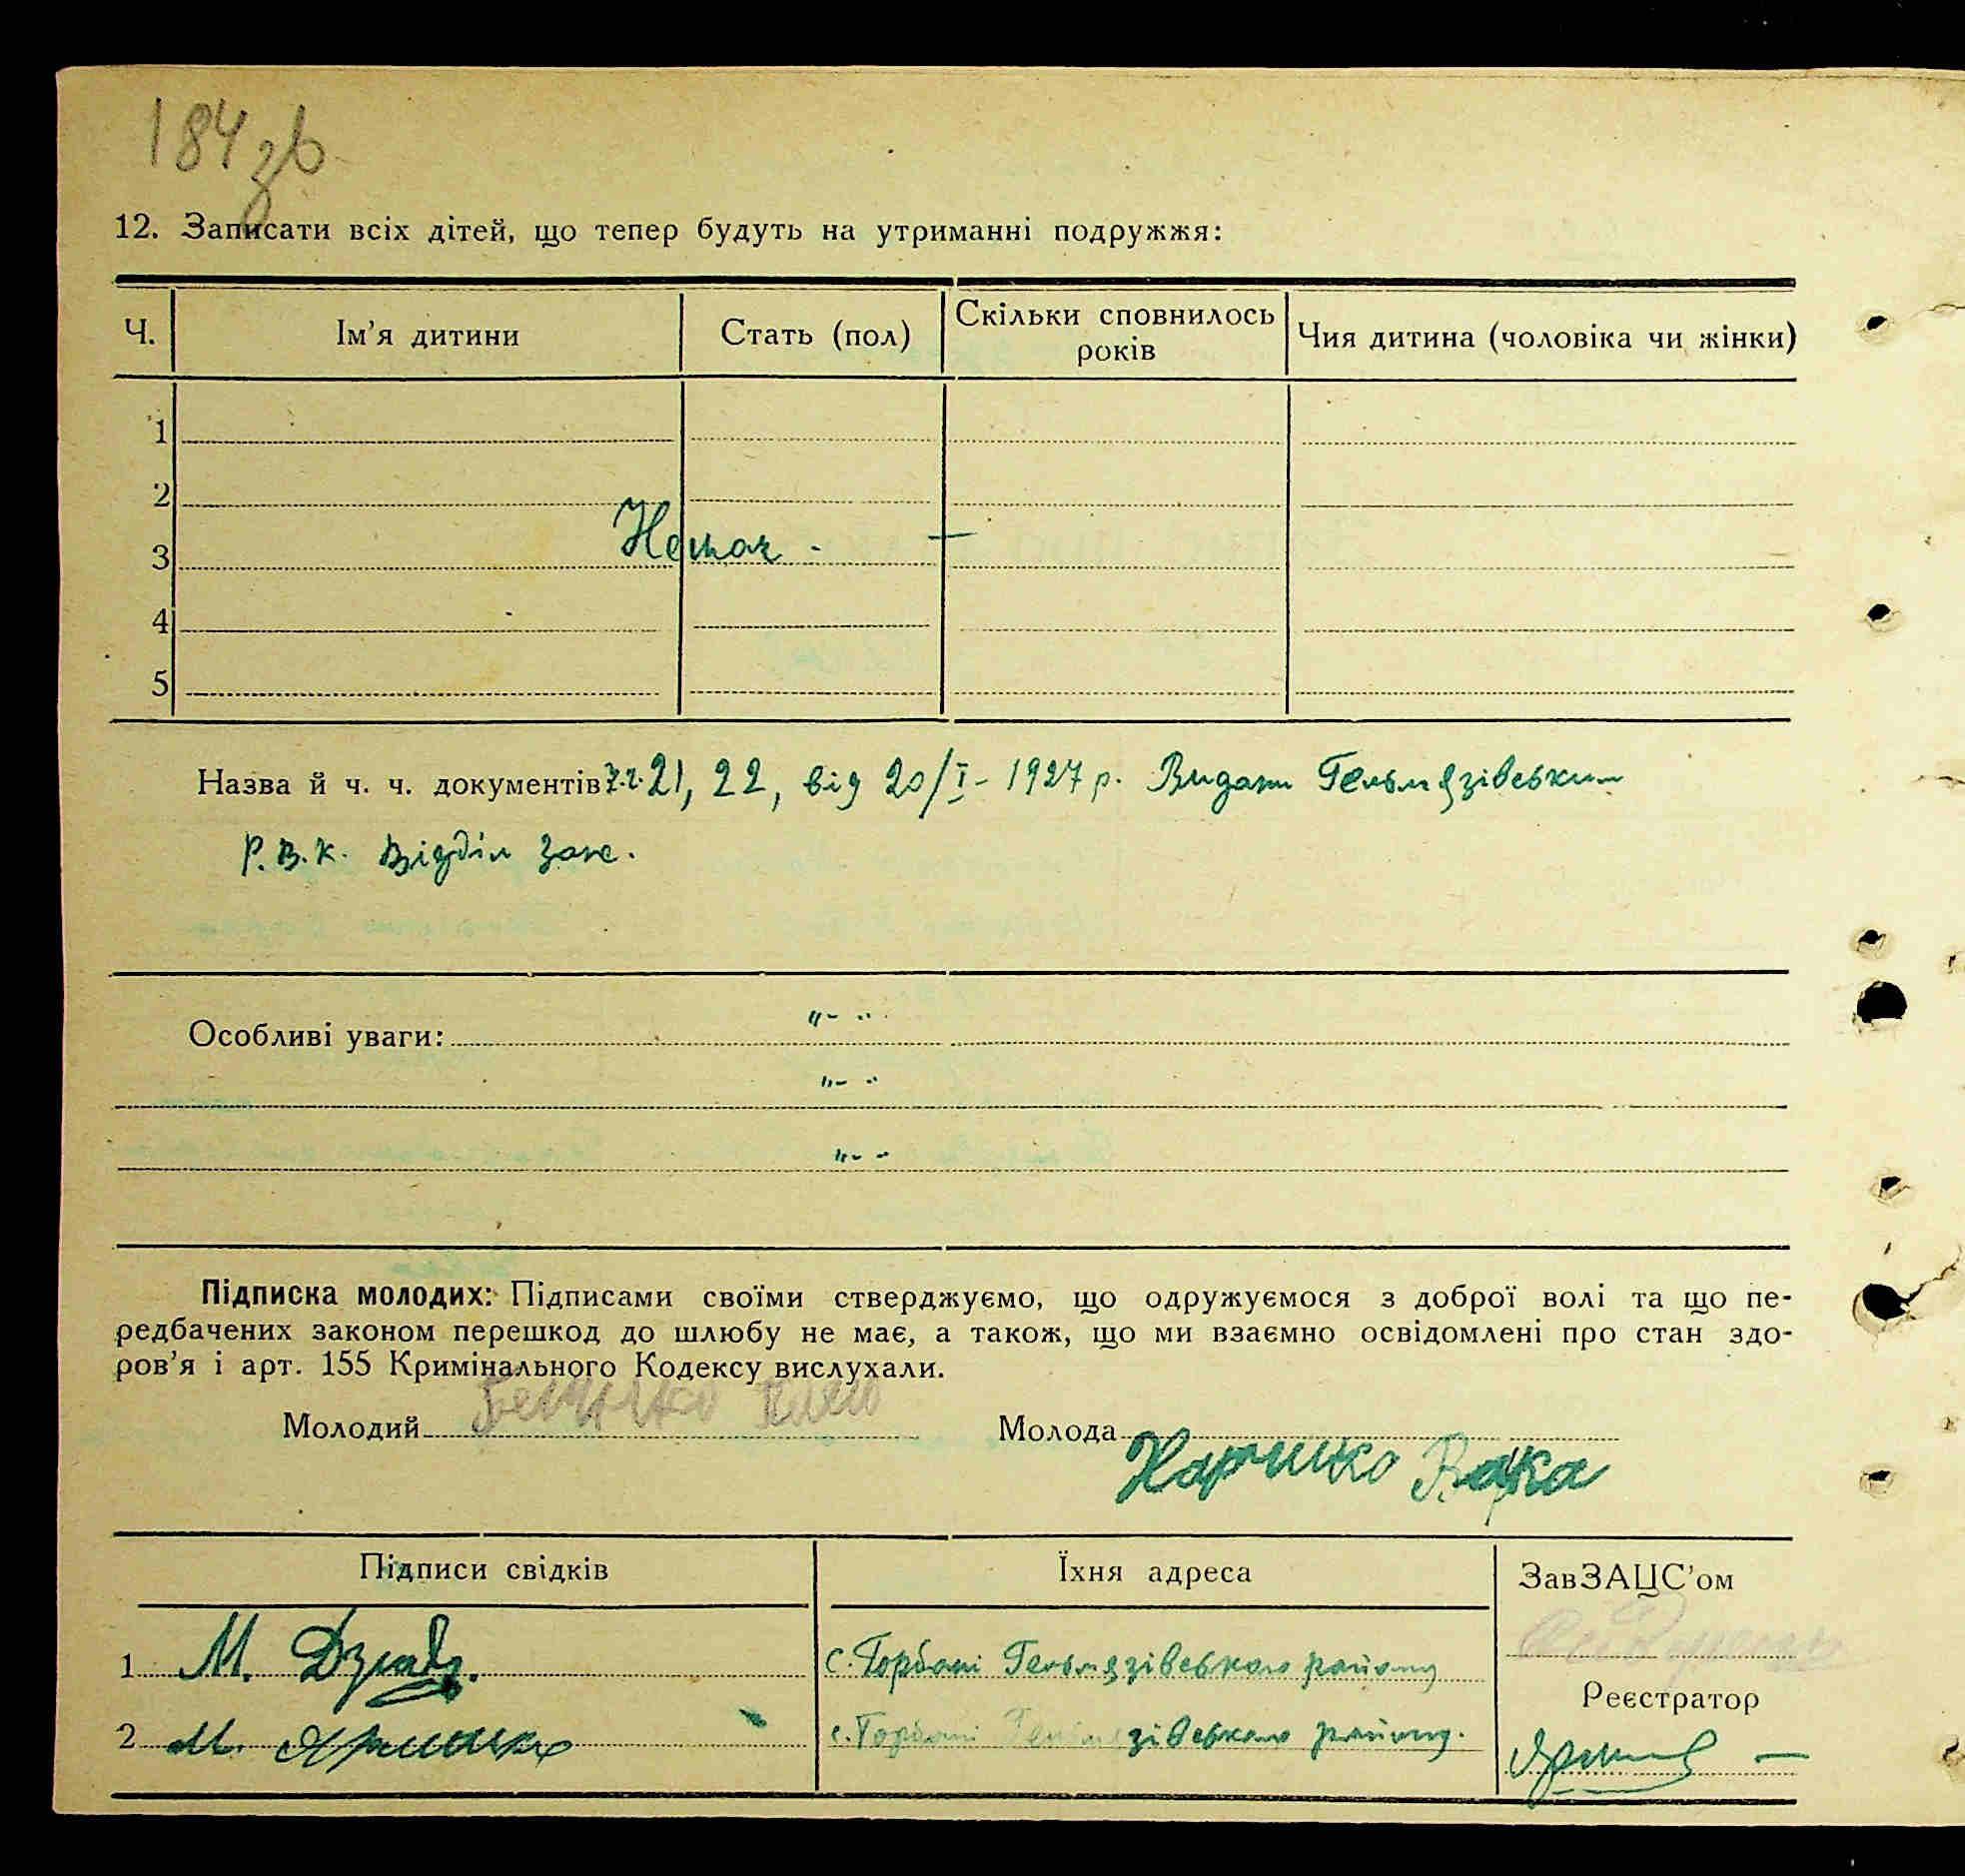 184 зв
12. Записати всіх дітей, що тепер будуть на утриманні подружжя:
Ч. Ім’я дитини Стать (пол) Скільки сповнилось років Чия дитина (чоловіка чи жінки)
1
2
Немає -
3
4
5
Назва й ч. ч. документів 21, 22, від 20/I - 1927 р. Видані Гельмязівським
Р.В.К. Відділ
Особливі уваги:
Підписка молодих: Підписами своїми стверджуємо, що одружуємося з доброї волі та що пе-
редбачених законом перешкод до шлюбу не має, а також, що ми взаємно освідомлені про стан здо-
ров’я і арт. 155 Кримінального Кодексу вислухали.
Молодий Молода
Підписи свідків Їхня адреса ЗавЗАЦС’ом
1 М. с. Горбані Гельмязівського району
Реєстратор
2 М. с. Горбані Гельмязівського району.